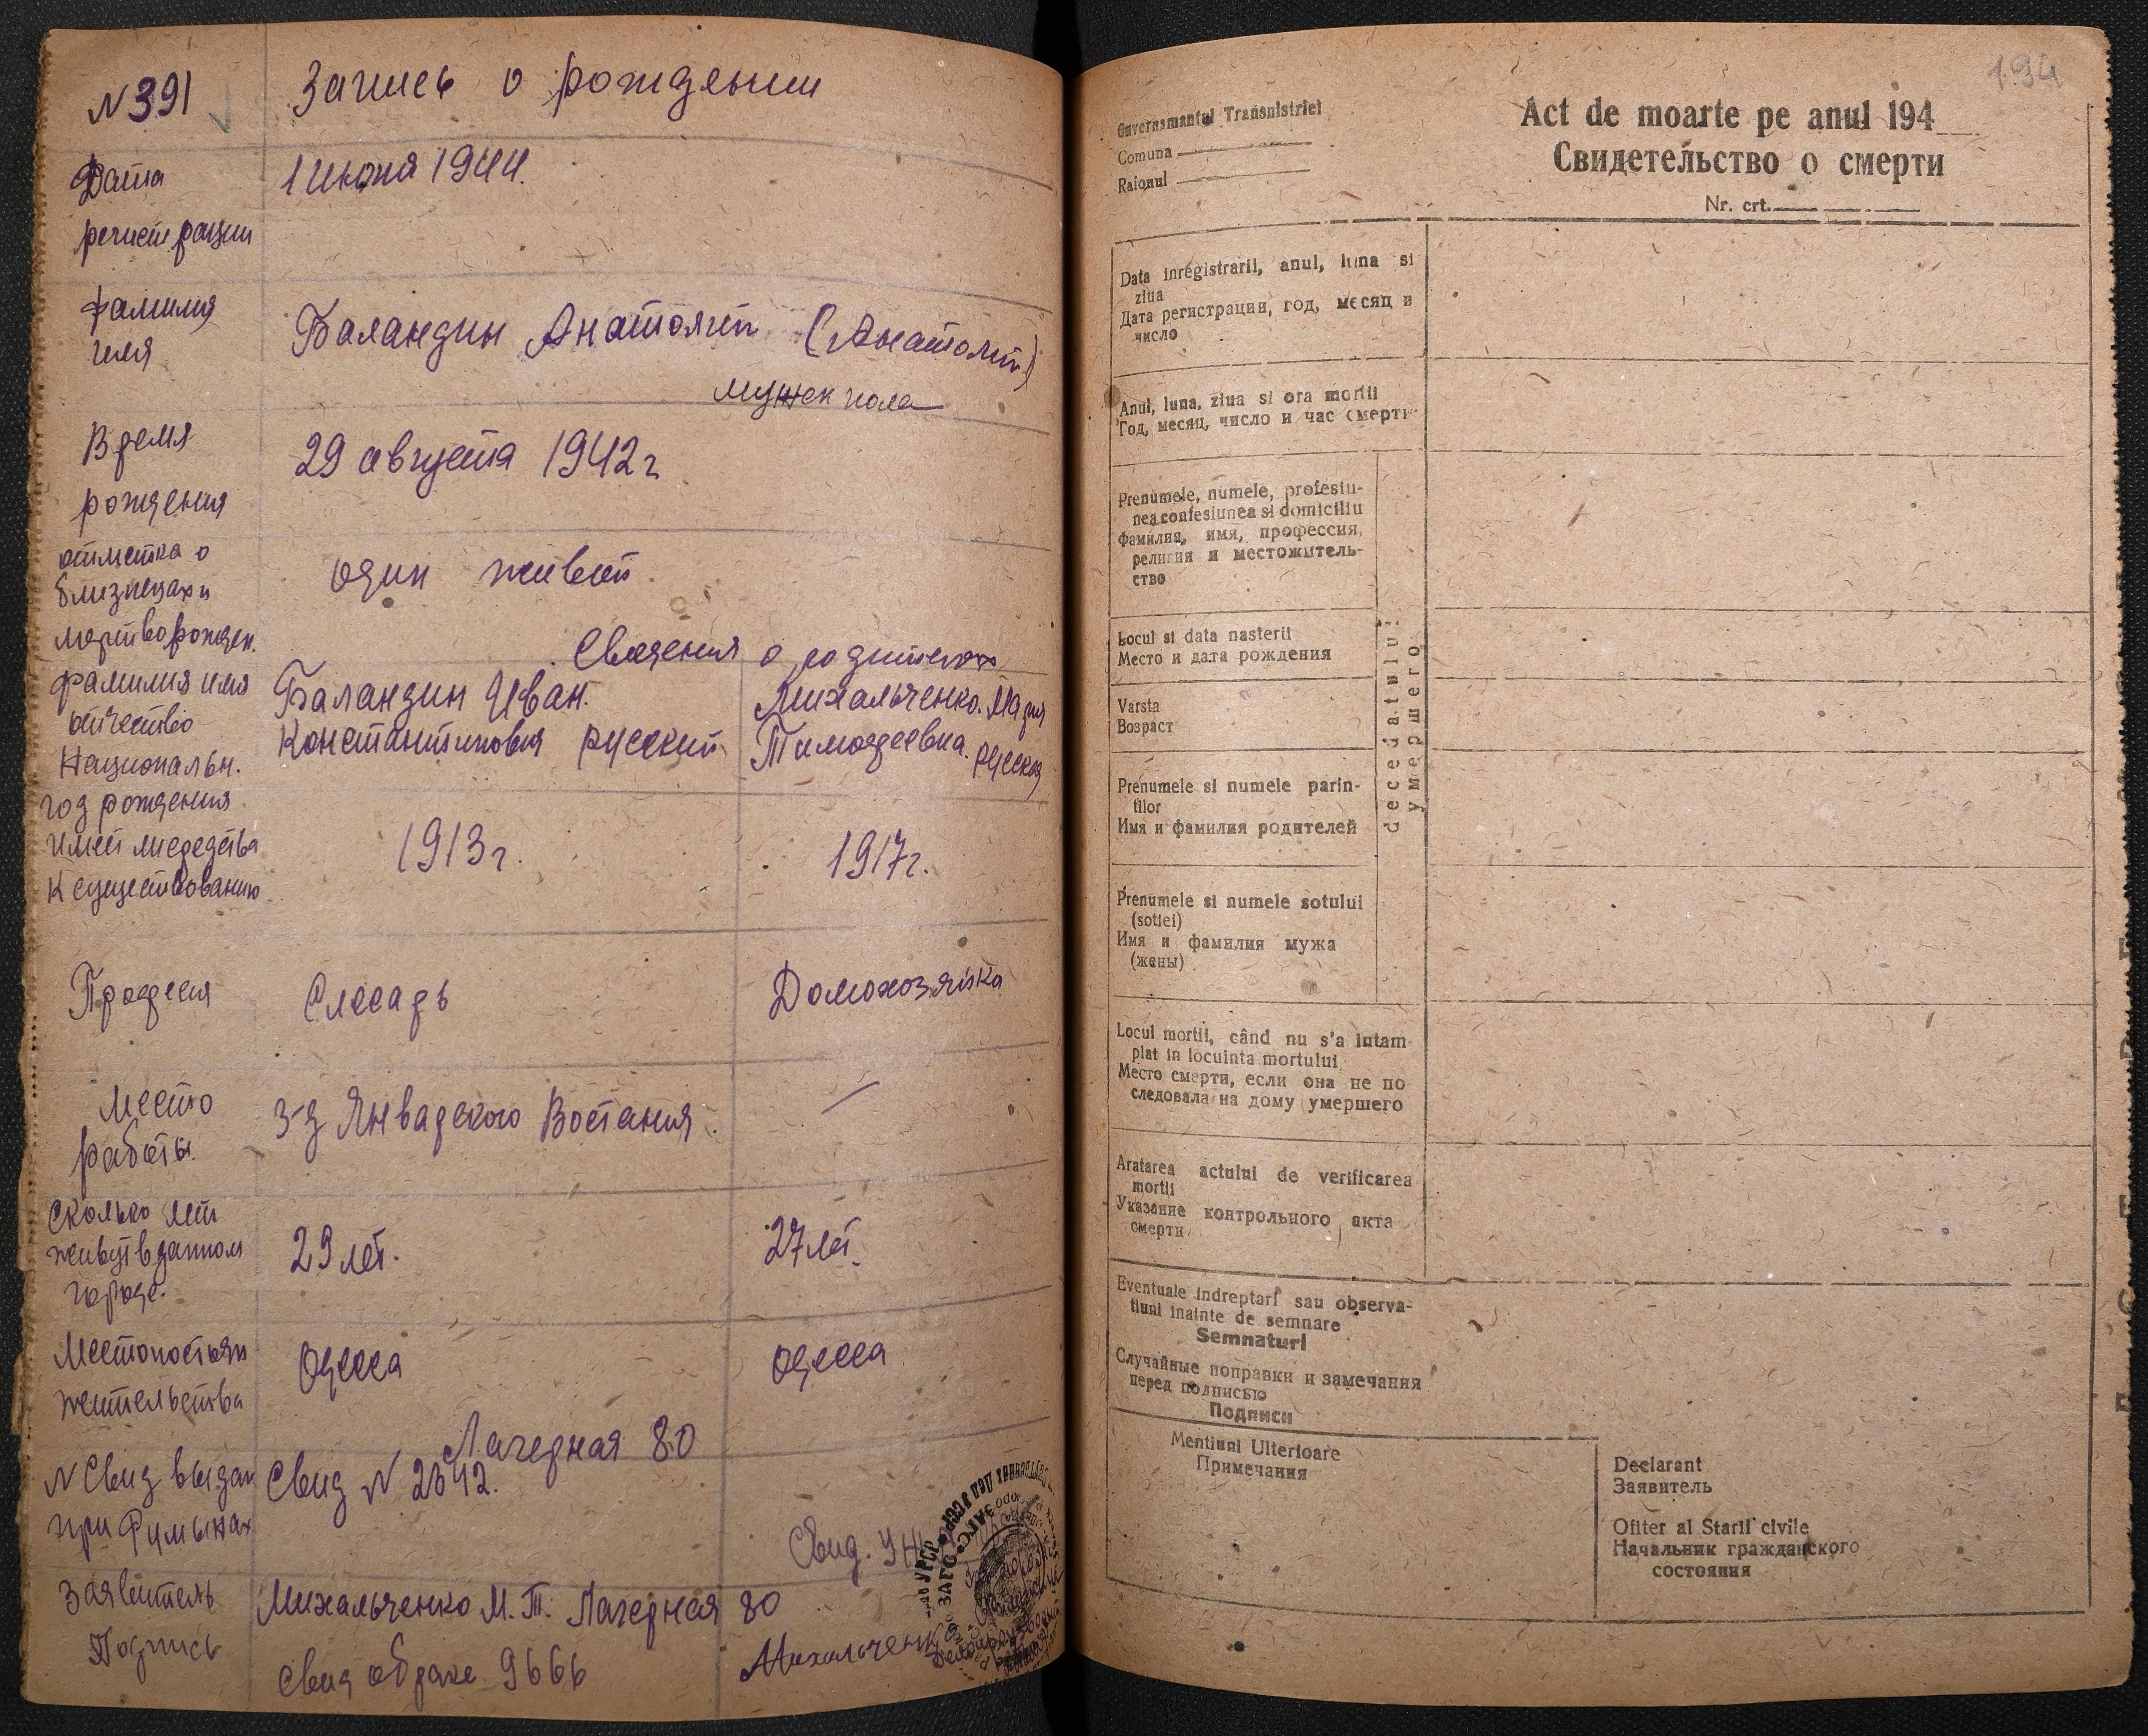 N 391
Запись о рождении
Дата
регистрации
1 июня 1944.
Фамилия
имя
Баландин Анатолий (Анатолий)
мужск пола
Время
рождения
29 августа 1942 г
отметка о
близнецах и
мертворожден.
один живой
Сведения о родителях
Фамилия имя
отчество
Национальн.
Баландин Иван.
Константинович русский
Михальченко. Мария
Тимофеевна. русская
год рождения
Имеет ли средства
к существованию
1913 г.
1917 г.
Професия
Слесарь
Домохозяйка
Место
работы.
з-д Январского Востания.
—
Сколько лет
живут в данном
городе.
29 лет.
27 лет.
Место постоян
жительства
Одесса
Одесса
Лагерная 80
N Свид выдан
при Румынах
Свид N 2642.
Свид.
Заявитель
Михальченко М. Т. Лагерная 80
Подпись
Свид о браке 9666
Михальченко
УРСР
ЗАГС
194
Guvernamantul Transnistriei
Comuna
Raionul
Act de moarte pe anul 194
Свидетельство о смерти
Nr. crt.
Data inregistrarii, anul, luna si
ziua
Дата регистрации, год, месяц и
число
Anul, luna, ziua si ora mortii
Год, месяц, число и час смерти
Prenumele, numele, profesiu-
nea confesiunea si domiciliu
фамилия, имя, профессия,
религия и местожитель-
ство
Locul si data nasterii
Место и дата рождения
Varsta
Возраст
Prenumele si numele parin-
tilor
Имя и фамилия родителей
Prenumele si numele sotului
(sotiei)
Имя и фамилия мужа
(жены)
decedatului
умершего
Locul mortii, când nu s'a intam-
plat in locuinta mortului
Место смерти, если она не по
следовала на дому умершего
Aratarea actului de verificarea
mortii
Указание контрольного акта
смерти
Eventuale indreptari sau observa-
tiuni inainte de semnare
Semnaturi
Случайные поправки и замечания
перед подписью
Подписи
Mentiuni Ulterioare
Примечания
Declarant
Заявитель
Ofiter al Starii civile
Начальник гражданского
состояния